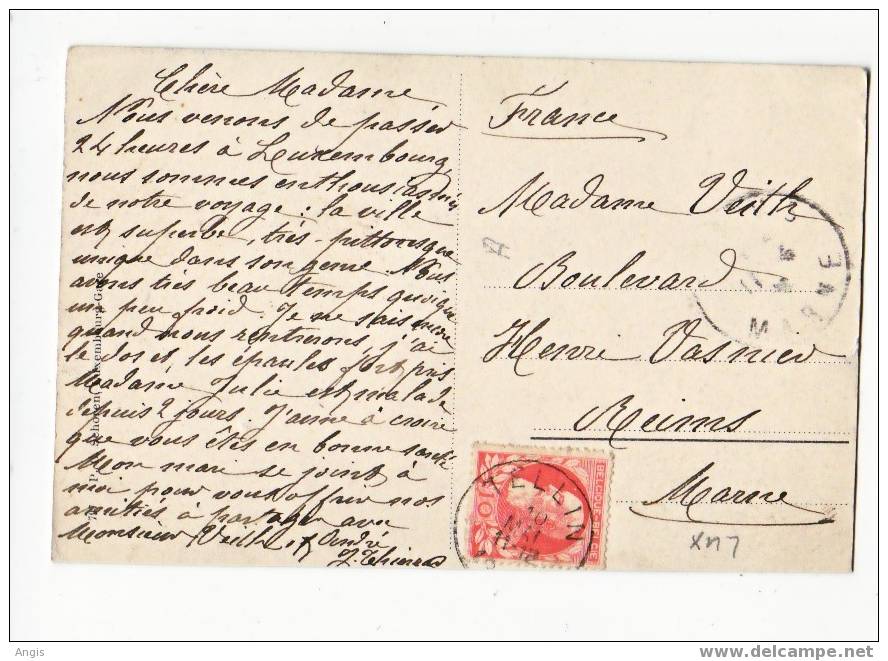 Chère Madame
Nous venons de passer
24 heures à Luxembourg,
nous sommes enthousiasmés
de notre voyage : la ville
est superbe, très-pittoresque
unique dans son genre Nous
avons très beau temps quoique
un peu froid. Je ne sais encore
quand nous rentrerons, j'ai
le dos et les épaules fort pris
Madame Julie est malade
depuis 2 jours. J'aime à croire
que vous êtes en bonne santé
Mon mari se joint à
moi pour vous offrir nos
amitiés à partager avec
Monsieur Veith et André
J. Thierrad
Luxembourg-Gare
France
Madame Veith
Boulevard
Henri Vasnier
Reims
Marne
MARNE
BELGIQUE BELGIE
10
TELLIN
10
MAI
LUX
Angis
www.delcampe.net